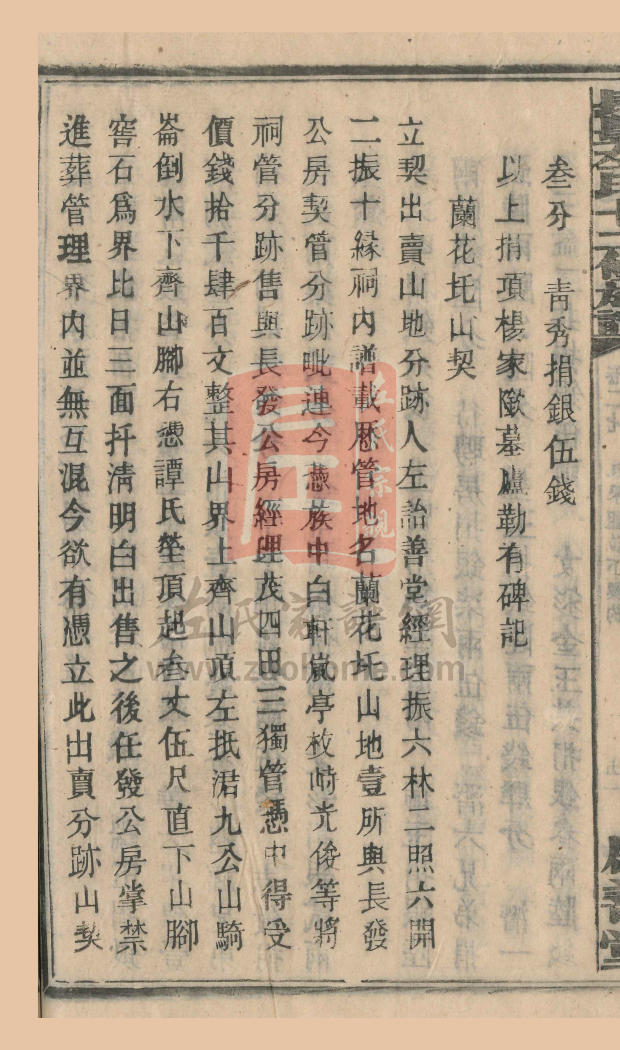 叁分　靑秀捐銀伍錢
以上捐項楊家墩墓廬勒有碑記
蘭花圫山契
立契出賣山地分跡人左詒善堂經理振六林二照六開
二振十緣祠內譜載歷管地名蘭花圫山地壹所與長發
公房契管分跡毗連今憑族中白軒嵐亭枚時光俊等將
祠管分跡售與長發公房經理茂四田三獨管憑中得受
價錢拾千肆百文整其山界上齊山頂左抵涒九公山騎
崙倒水下齊山腳右憑譚氏塋頂起叁丈伍尺直下山腳
窖石爲界比日三面扦清明白出售之後任發公房掌禁
進葬管理界內並無互混今欲有憑立此出賣分跡山契
左氏宗親
左氏家譜網
www.zuohome.com